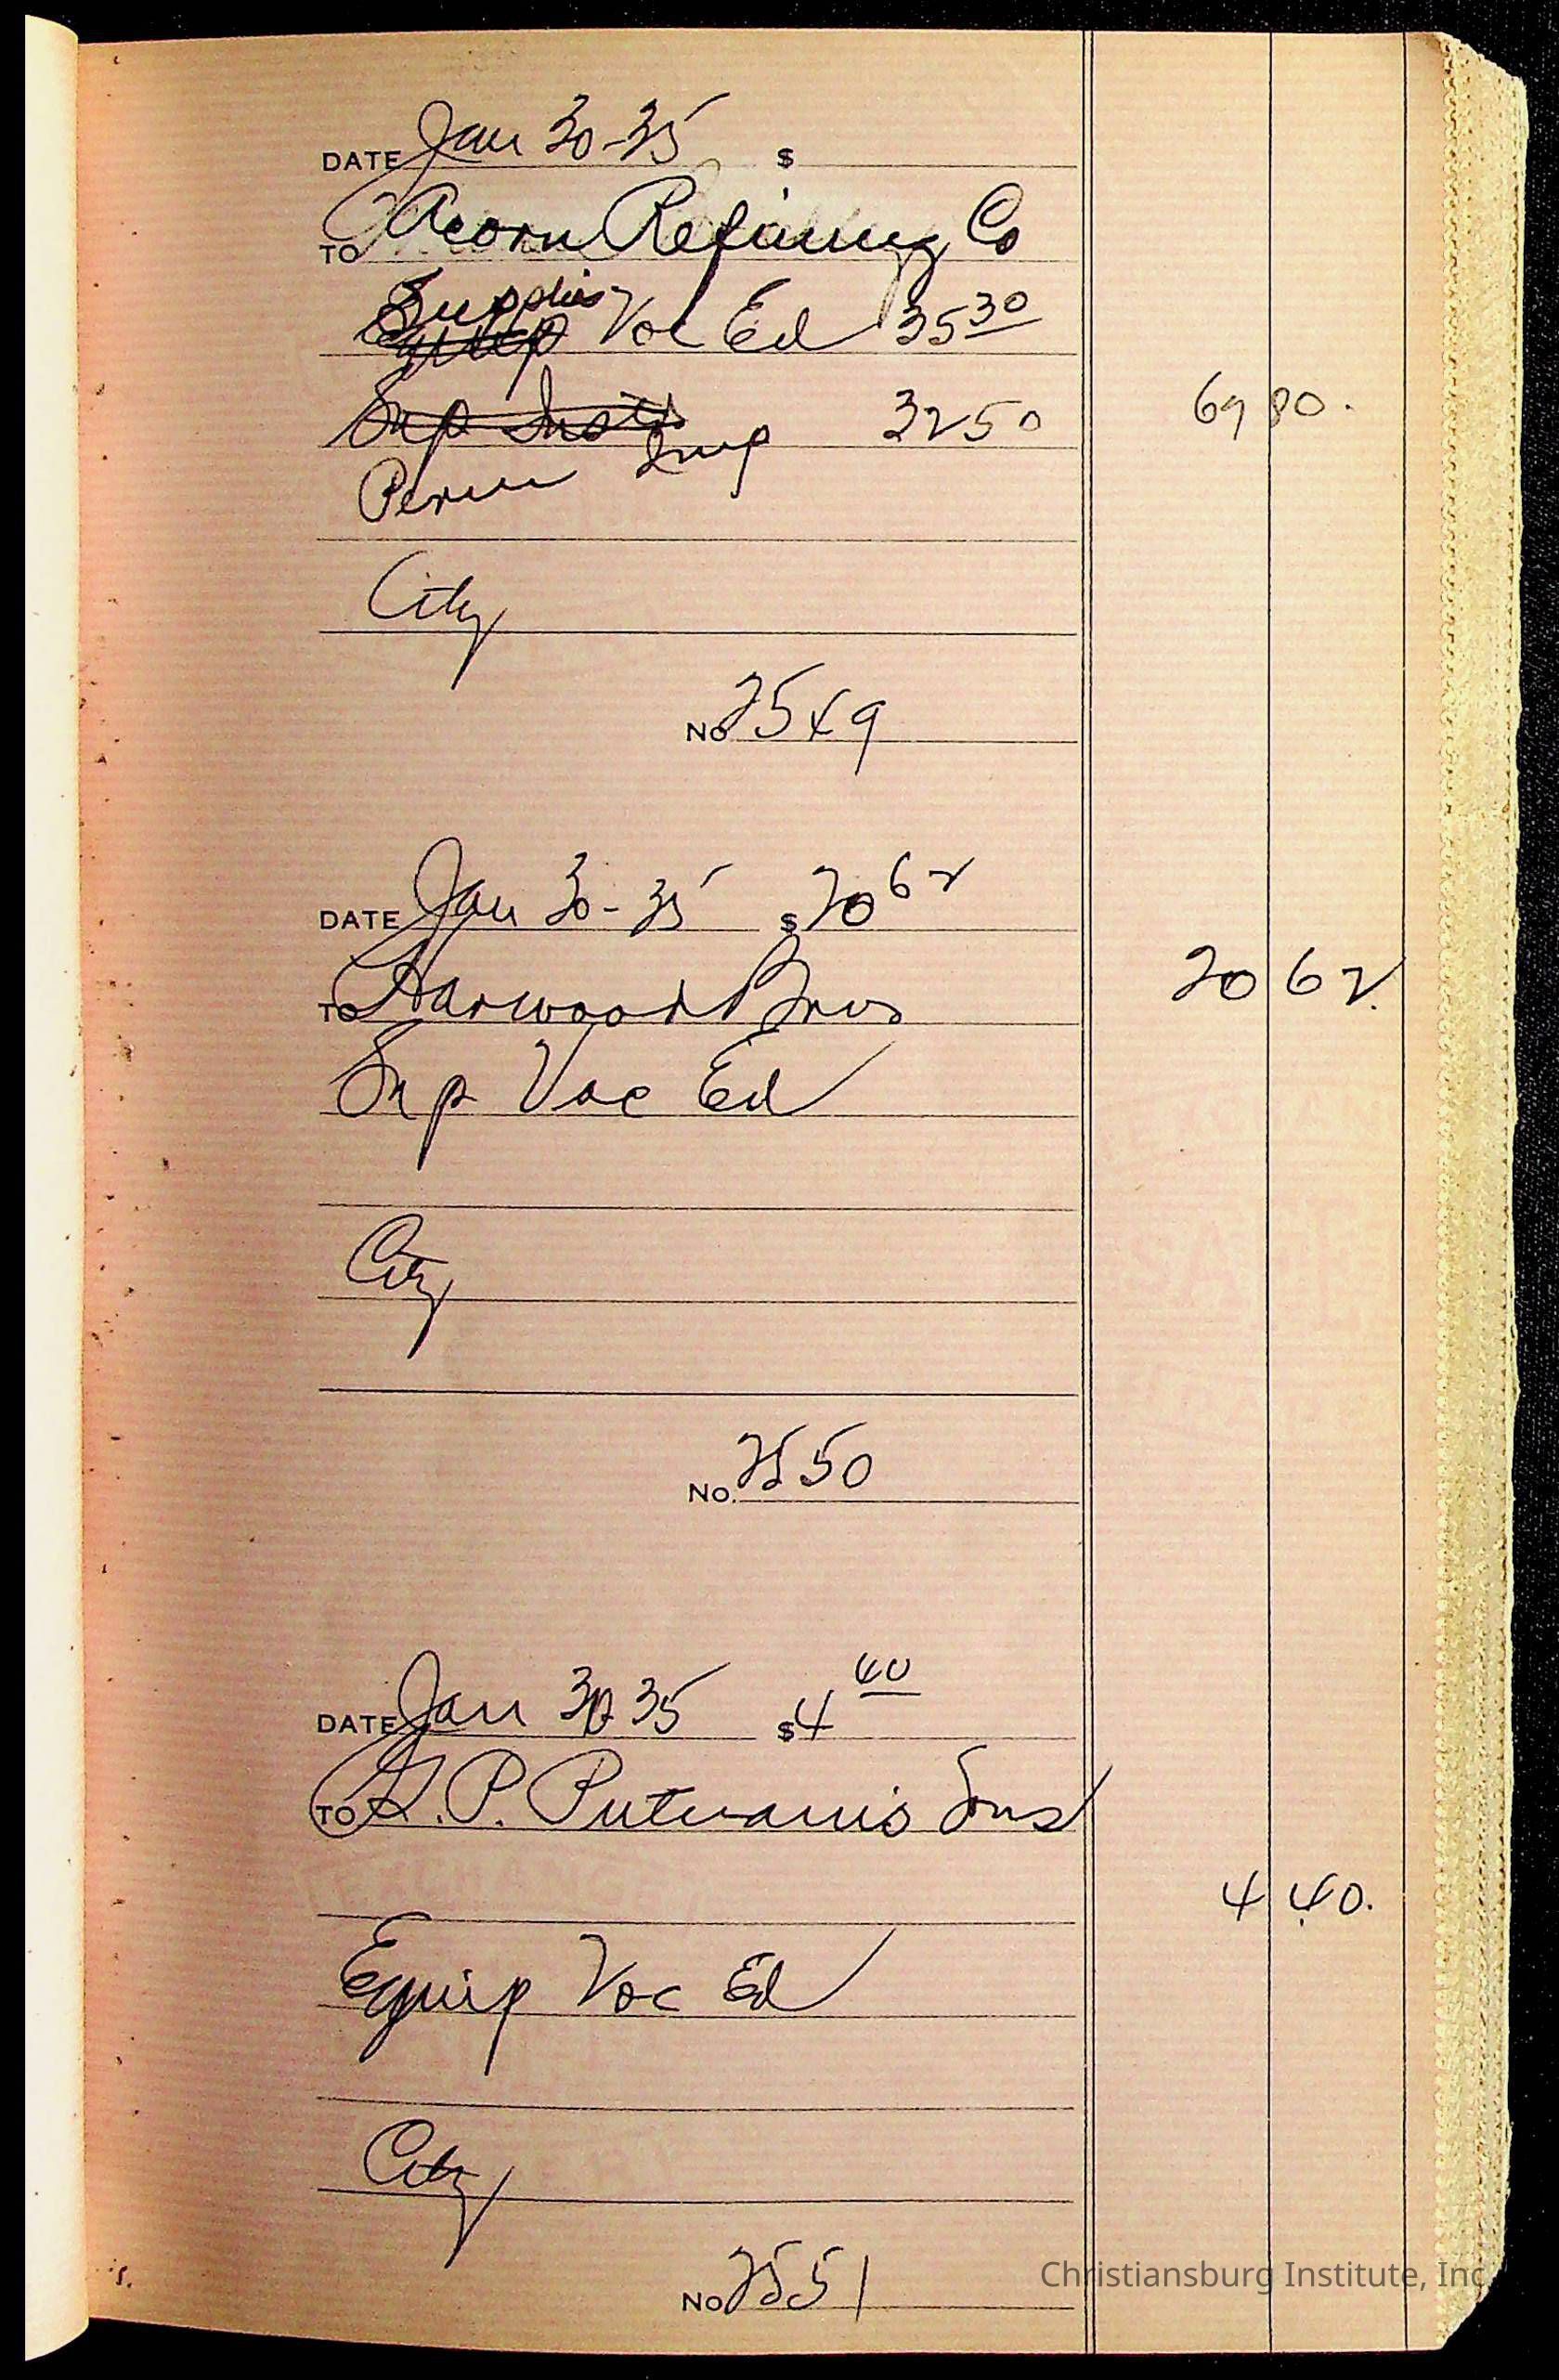 DATE Jan 30-35 $
TO Acorn Refining Co
Supplies
Equip Voc Ed 35 30
Sup Inst 32 50 69 80.
Perm Imp
City
No 2549
DATE Jan 30-35 $20 62
TO Harwood Bros 20 62
Sup Voc Ed
City
No. 2550
DATE Jan 30 35 $4 40
TO G. P. Putnam's Sons
4 40.
Equip Voc Ed
City
No 2551
Christiansburg Institute, Inc.